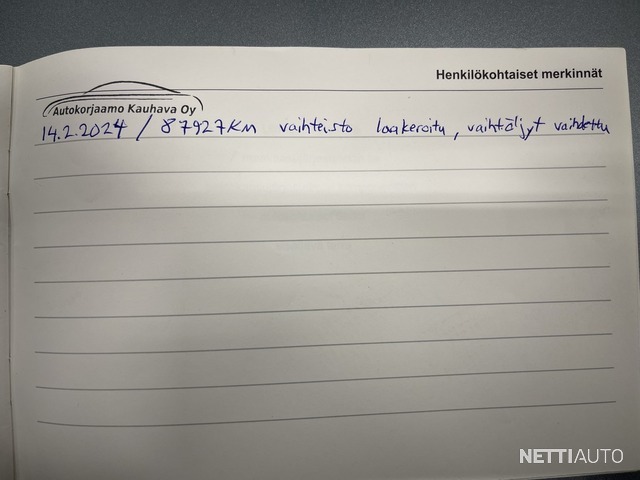 Henkilökohtaiset merkinnät
Autokorjaamo Kauhava Oy
14.2.2024 / 87927KM vaihteisto laakeroitu, vaihtöljyt vaihdettu
NETTIAUTO